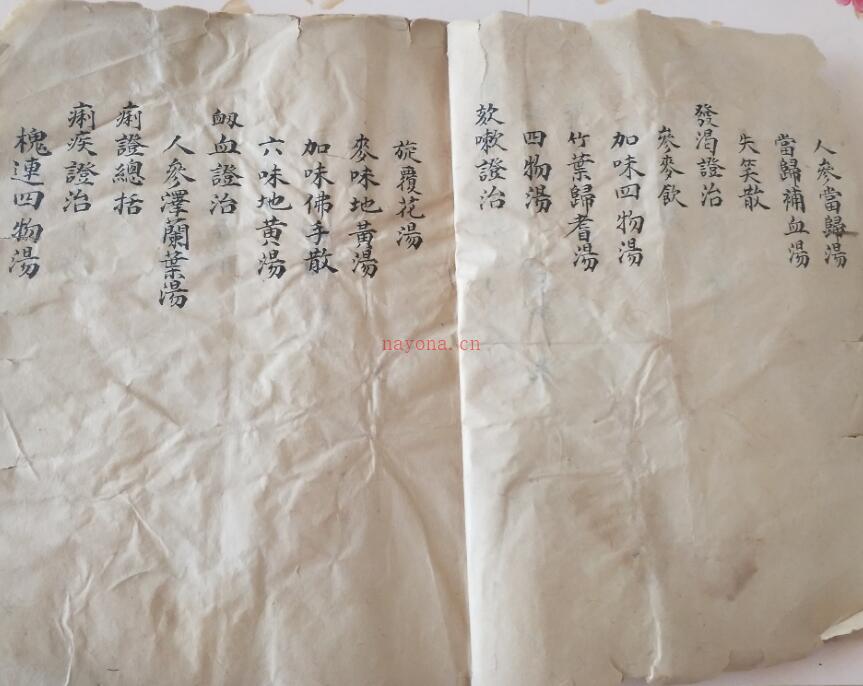 人參當歸湯
當歸補血湯
失笑散
發渴證治
參麥飲
加味四物湯
竹葉歸耆湯
四物湯
欬嗽證治
旋覆花湯
麥味地黃湯
加味佛手散
六味地黃湯
衂血證治
人參澤蘭葉湯
痢證總括
痢疾證治
槐連四物湯
nayona.cn